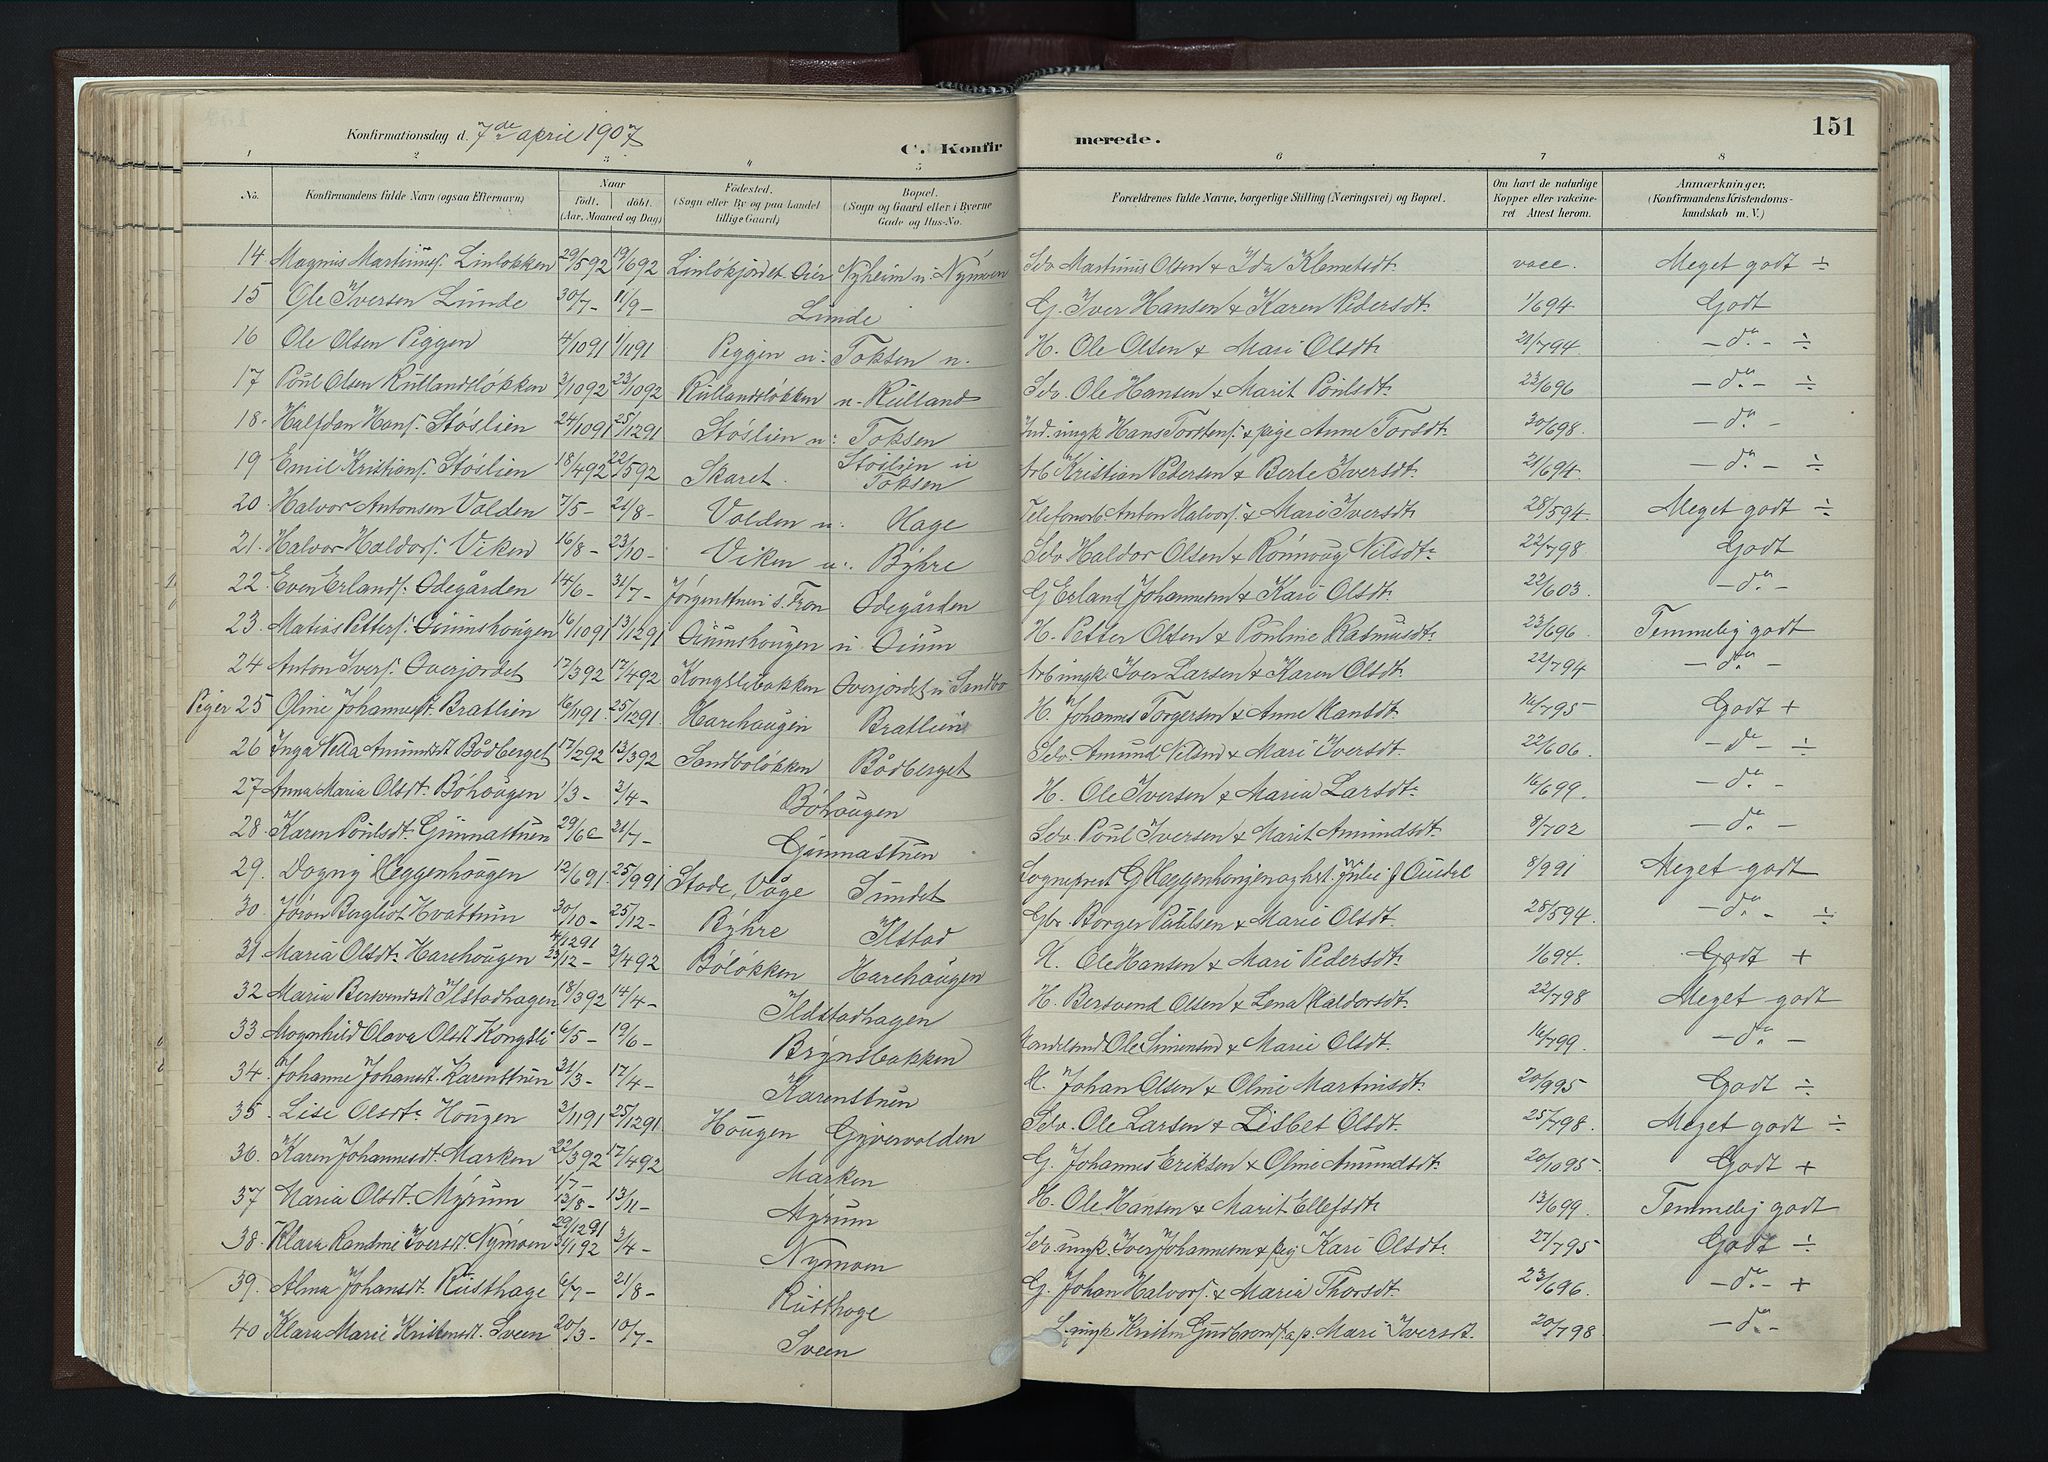 151
Konfirmationsdag d. 7de april 1907
C. Konfirmerede.
1 2 3 4 5 6 7 8
No. | Konfirmandens fulde Navn (ogsaa Efternavn) | Naar født. døbt. (Aar, Maaned og Dag) | Födested. (Sogn eller By og paa Landet tillige Gaard) | Bopæl. (Sogn og Gaard eller i Byerne Gade og Hus-No. | Forældrenes fulde Navne, borgerlige Stilling (Næringsvei) og Bopæl. | Om havt de naturlige Kopper eller vakcineret Attest herom. | Anmærkninger. (Konfirmandens Kristendomskundskab m. V.)
14 Magnus Martinus. Linløkken 29/592 19/692 Linløkjordet Nyheim u. Nymoen Martinus Olsen & Ida Klemetsdt. vacc. Meget godt ÷
15 Ole Iversen Lunde 30/7- 11/9- Lunde G. Iver Hansen & Karen Pedersdt. 1/694. Godt
16 Ole Olsen Piggen 4/1091 1/1191 Piggen u. Toksen u. H. Ole Olsen & Mari Olsdt. 21/794 - do. - ÷
17 Poul Olsen Rullandsløkken 3/1092 23/1092 Rullandsløkken u. Rulland Sdv. Ole Hansen & Marit Poulsdt. 23/696 - do. - ÷
18. Halfdan Hans. Støslien 24/1091 25/1291 Støslien u. Toksen Ind. ungk Hans Torstens. & pige Anne Torsdt. 30/698. - do. -
19 Emil Kristians. Støslien 18/492 22/592 Skaret. Støslien u Toksen Arb Kristian Pedersen & Berte Iversdt. 21/694. - do. - ÷
20. Halvor Antonsen Volden 7/5- 21/8- Volden u. Hage Telefonarb. Anton Halvors. & Mari Iversdt. 28/594. Meget godt ÷
21. Halvor Haldors. Viken 16/8- 23/10- Viken u. Byhre Sdv Haldor Olsen & Rønnoug Nilsdt. 22/798 Godt
22. Even Erlands. Ødegården 14/6- 31/7- Jørgenstuen i S. Fron Ødegården G Erland Johannesen & Kari Olsdt. 22/603. - do. -
23. Matias Petters. Oiumshougen 16/1091 13/1291 Oiumshougen u. Oium H. Petter Olsen & Pouline Rasmusdt. 23/696 Temmelig godt
24 Anton Ivers. Overjordet 17/392 17/492 Kongslibakken Overjordet u. Sandbo Arb ungk. Iver Larsen & Karen Olsdt. 22/794 - do. -
Piger 25 Oline Johannesdt. Bratlien 16/1191. 25/1291. Harehaugen Bratlien H. Johannes Torgersen & Anne Hansdt. 16/795 Godt +
26 Inga Nella Amundsdt Bådberget 17/292 13/392 Sandboløkken Bådberget Sdv. Amund Nilsen & Mari Iversdt. 22/606 - do - ÷
27 Anna Maria Olsdt. Bøhougen 1/3- 3/4- Bøhougen H. Ole Iversen & Maria Larsdt. 16/699 - do. -
28 Karen Poulsdt. Gunnastuen 31/7- Gunnastuen Sdv. Poul Iversen & Marit Amundsdt. 8/702 - do. -
29. Dagny Heggenhougen 12/691. 25/991 Stade, Våge Sundet Sogneprest G Heggenhougen og hst. Julie J 8/991 Meget godt
30. Jøron Bergliot Hvattum 30/10- 25/12- Byhre Ilstad Gbr. Borger Paulsen & Marie Olsdt. 28/594. - do. - ÷
31 Maria Olsdt. Harehougen 4/1291 23/12- 3/492 Bøløkken Harehougen H. Ole Hansen & Mari Pedersdt. 1/694. Godt +
32 Maria Bersvendsdt Ilstadhagen 18/392 14/4- Ildstadhagen H. Bersvend Olsen & Lena Haldorsdt. 22/798 Meget godt
33 Magnhild Olava Olsdt Kongsli 6/5- 19/6- Brynsbakken Handelsmd Ole Simensen & Marie Olsdt. 16/799 - do. -
34. Johanne Johansdt. Karenstuen 21/3- 17/4- Karenstuen H. Johan Olsen & Oline Martinsdt. 20/995 Godt ÷
35. Lise Olsdt. Hougen 3/1191 25/1291 Hougen Gyvervolden Sdv. Ole Larsen & Lisbet Olsdt. 25/798. Meget godt ÷
36. Karen Johannesdt. Marken 22/392 17/492 Marken G. Johannes Eriksen & Oline Amundsdt. 20/1095. Godt +
37 Maria Olsdt. Myrum 1/7- 13/8- 13/11- Myrum H. Ole Hansen & Marit Ellefsdt. 13/699. Temmelig godt
38. Klara Randine Iversdt. Nymoen 29/1291 31/192 3/4- Nymoen Sdv. ungk. Iver Johannesen & pig Kari Olsdt. 27/795 Godt ÷
39. Alma Johansdt. Rusthage 6/7- 21/8- Rusthage G. Johan Halvors. & Maria Thorsdt. 23/696. - do. - +
40 Klara Marie Kristensdt. Sveen 20/3- 10/7- Sveen ungk Kristen Gudbrands. & p. Mari Iversdt. 20/798 - do. -